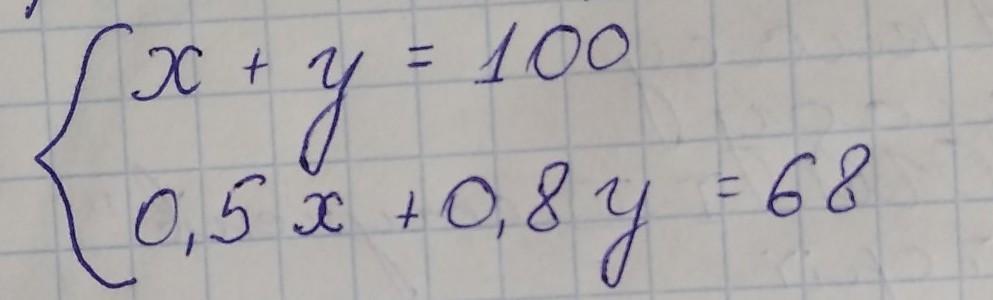 x + y = 100
0,5 x + 0,8 y = 68